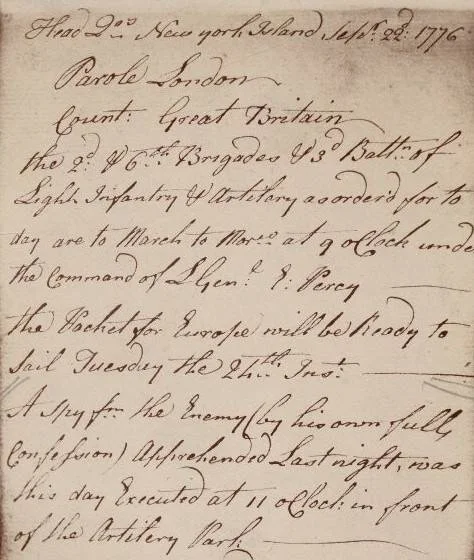 Head Qrs New york Island Sepr. 22d. 1776
Parole London
Count: Great Britain
the 2d. & 6th Brigades & 3d Battn. of
Light Infantry & Artilery as order'd for to
day are to March to Morro at 9 oClock unde
the Command of L Genl. E: Percy
the Packet for Europe will be Ready to
Sail Tuesday the 24th Inst.
A Spy fm the Enemy (by his own full
Confession) Apprehended Last night, was
this day Executed at 11 oClock in front
of the Artilery Park